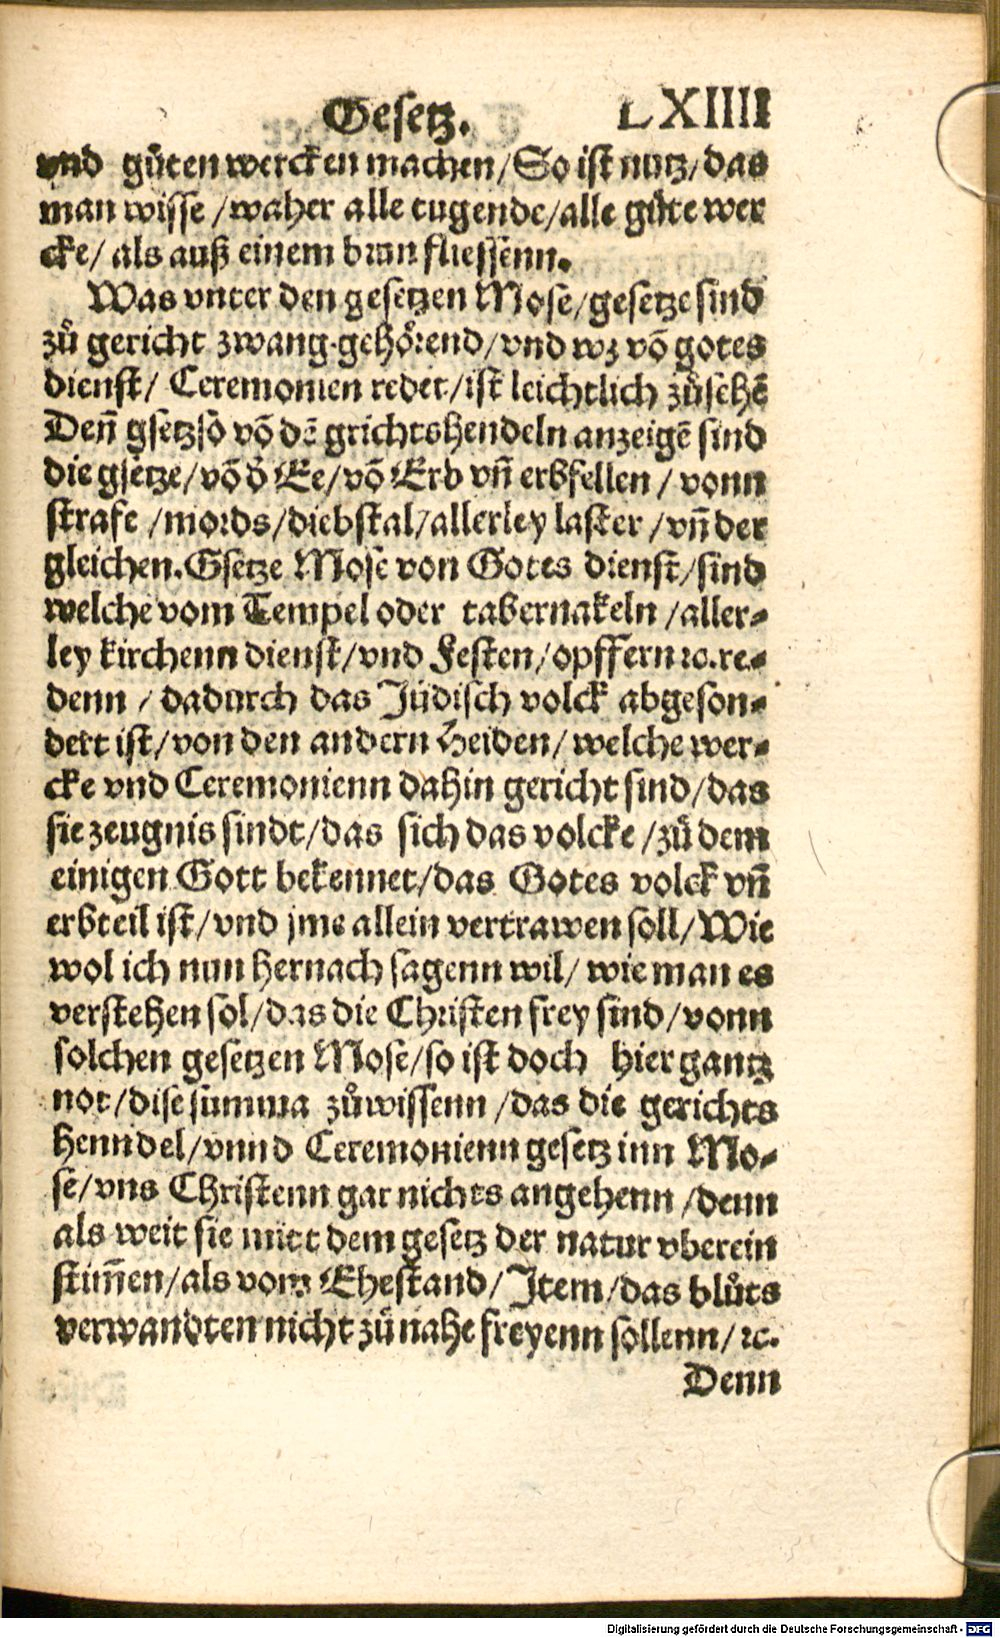 Gesetz. LXIIII
vnd gůten wercken machen/So ist nutz/das
man wisse/waher alle tugende/alle gůte wer
cke/als auß einem brun fliessenn.
Was vnter den gesetzen Mose/gesetze sind
zů gericht zwang gehőrend/vnd wz võ gotes
dienst/ Ceremonien redet/ist leichtlich zůsehẽ
Deñ gsetz sõ võ dẽ grichtshendeln anzeigẽ sind
die gsetze/võ ð Ee/võ Erb vñ erbfellen/vonn
strafe/mords/diebstal/allerley laster/vñ der
gleichen.Gsetze Mose von Gotes dienst/sind
welche vom Tempel oder tabernakeln/aller-
ley kirchenn dienst/vnd Festen/opffern ꝛc.re-
denn/dadurch das Jüdisch volck abgeson-
dert ist/von den andern Heiden/welche wer-
cke vnd Ceremonienn dahin gericht sind/das
sie zeugnis sindt/das sich das volcke/zů dem
einigen Gott bekennet/das Gotes volck vñ
erbteil ist/vnd jme allein vertrawen soll/Wie
wol ich nun hernach sagenn wil/wie man es
verstehen sol/das die Christen frey sind/vonn
solchen gesetzen Mose/so ist doch hier gantz
not/dise summa zůwissenn/das die gerichts
henndel/vnnd Ceremonienn gesetz inn Mo-
se/vns Christenn gar nichts angehenn/denn
als weit sie mitt dem gesetz der natur vberein
stim̃en/als vom Ehestand/Jtem/das blůts
verwandten nicht zů nahe freyenn sollenn/ꝛc.
Denn
Digitalisierung gefördert durch die Deutsche Forschungsgemeinschaft - DFG